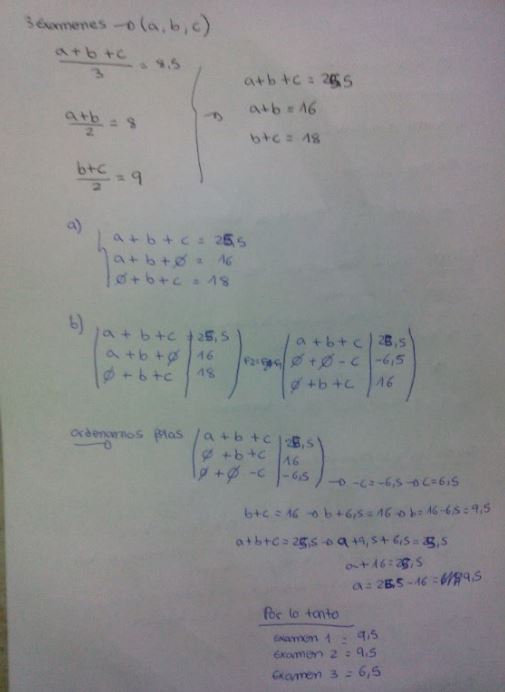 3 exámenes → (a, b, c)
a+b+c / 3 = 8,5
a+b / 2 = 8
b+c / 2 = 9
→ a+b+c = 25,5
a+b = 16
b+c = 18
a) a + b + c = 25,5
a + b + ∅ = 16
∅ + b + c = 18
b) a + b + c | 25,5
a + b + ∅ | 16
∅ + b + c | 18
a + b + c | 25,5
∅ + ∅ - c | -6,5
∅ + b + c | 16
ordenamos filas
a + b + c | 25,5
∅ + b + c | 16
∅ + ∅ - c | -6,5 → -c = -6,5 → c = 6,5
b+c = 16 → b+6,5 = 16 → b = 16-6,5 = 9,5
a+b+c = 25,5 → a+9,5+6,5 = 25,5
a+16 = 25,5
a = 25,5 - 16 = 9,5
Por lo tanto
examen 1 = 9,5
examen 2 = 9,5
examen 3 = 6,5